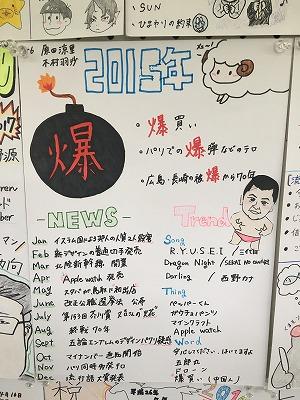 SUN
ひまわりの約束
原田涼里
木村羽沙
2015年
爆
・爆買い
・パリでの爆弾などのテロ
・広島・長崎の被爆から70年
-NEWS-
Jan イスラム国による邦人の人質2人殺害
Feb 新デザインの普通切手発売
Mar 北陸新幹線 開業
Apr Apple watch 発売
May スタバが鳥取に初出店
June 改正公職選挙法 公布
July 第153回芥川賞 又吉さん「火花」
Aug 終戦70年
Sept 五輪エンブレムのデザインパクリ疑惑
Oct マイナンバー通知開始
Nov パリ同時多発テロ
Dec 流行語大賞発表
Trend
Song
R.Y.U.S.E.I / 三代目
Dragon Night / SEKAI NO OWARI
Darling / 西野カナ
Thing
ペッパーくん
ガウチョパンツ
マインクラフト
Apple watch
Word
安心してください、はいてますよ
五郎丸
ドローン
爆買い(中国人)